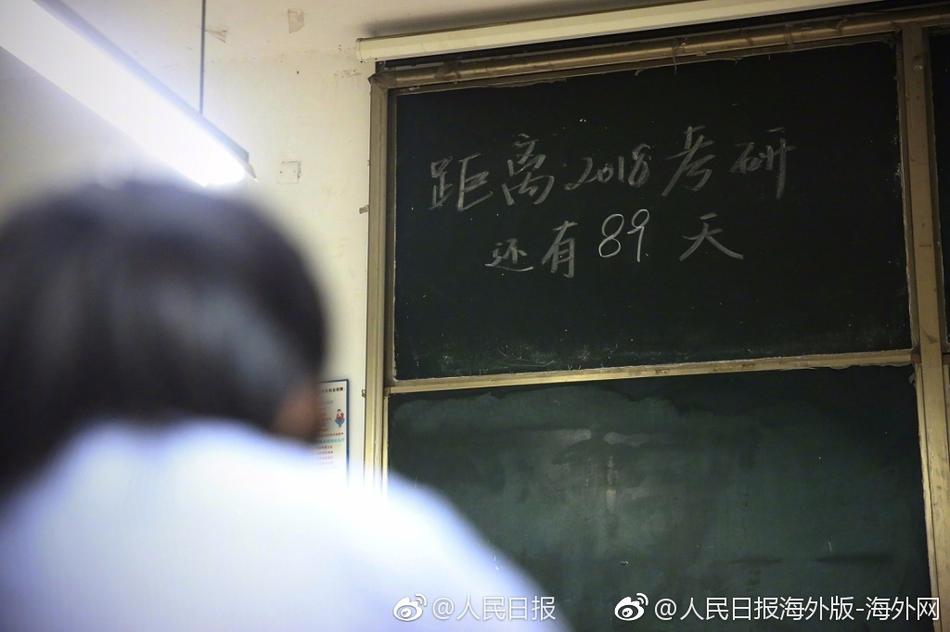 距离2018考研
还有89天
@人民日报
@人民日报海外版-海外网